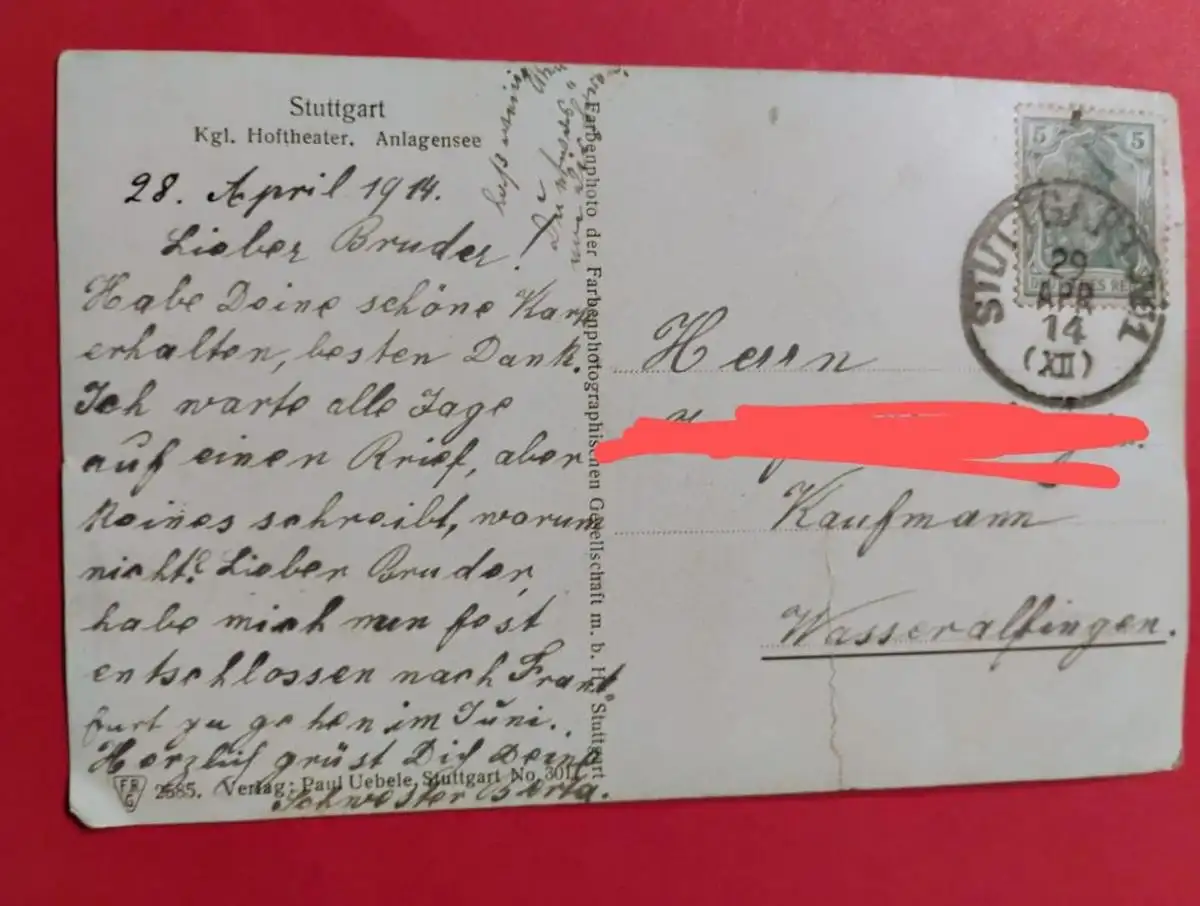 Stuttgart
Kgl. Hoftheater. Anlagensee
28. April 1914.
Lieber Bruder!
Habe Deine schöne Karte
erhalten, besten Dank.
Ich warte alle Tage
auf einen Brief, aber
keines schreibt, warum
nicht? Lieber Bruder,
habe mich nun fest
entschlossen nach Frank
furt zu gehen im Juni.
Herzlich grüst Dich Deine
Schwester Berta.
F R G
2585. Verlag: Paul Uebele, Stuttgart No. 301
"Farbenphoto der Farbenphotographischen Gesellschaft m. b. H." Stuttgart
5 5
STUTTGART No 1
29
APR
14
(XII)
Herrn
Kaufmann
Wasseralfingen.